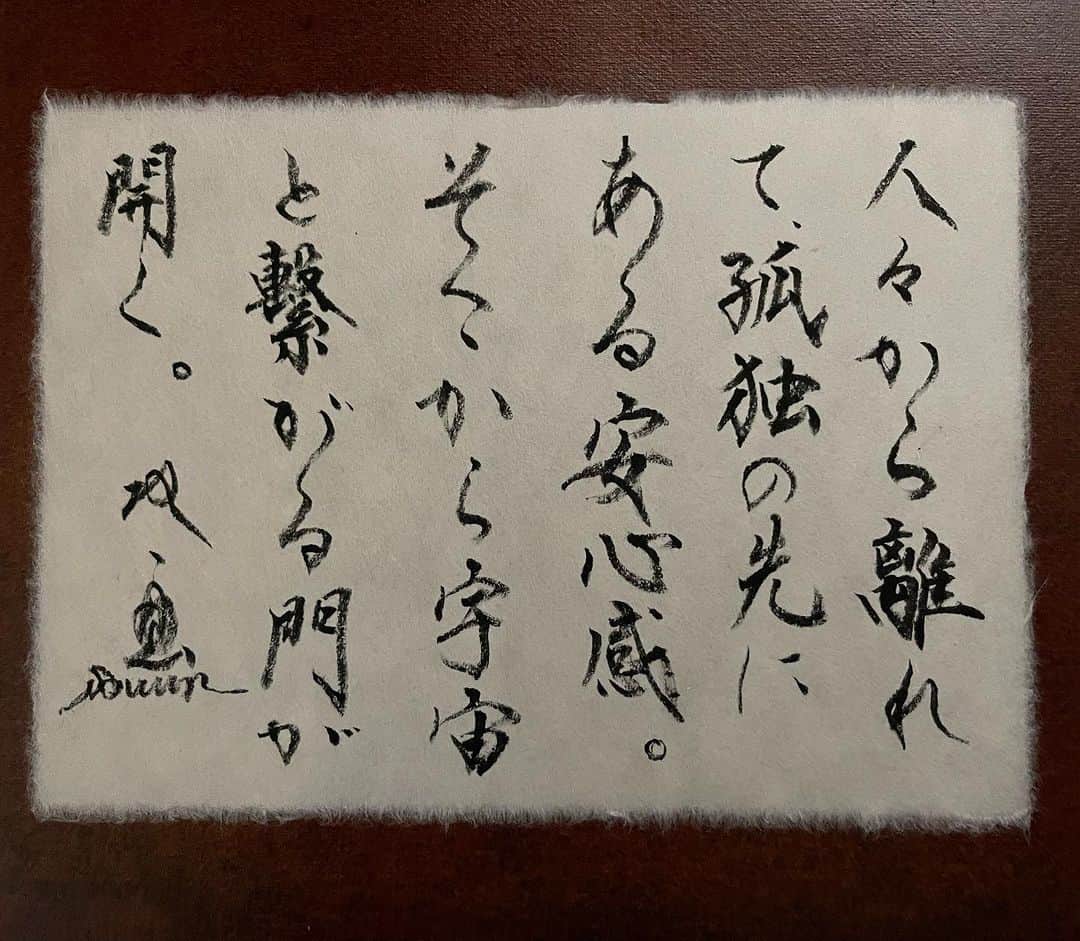 人々から離れ
て、孤独の先に
ある安心感。
そこから宇宙
と繋がる門が
開く。